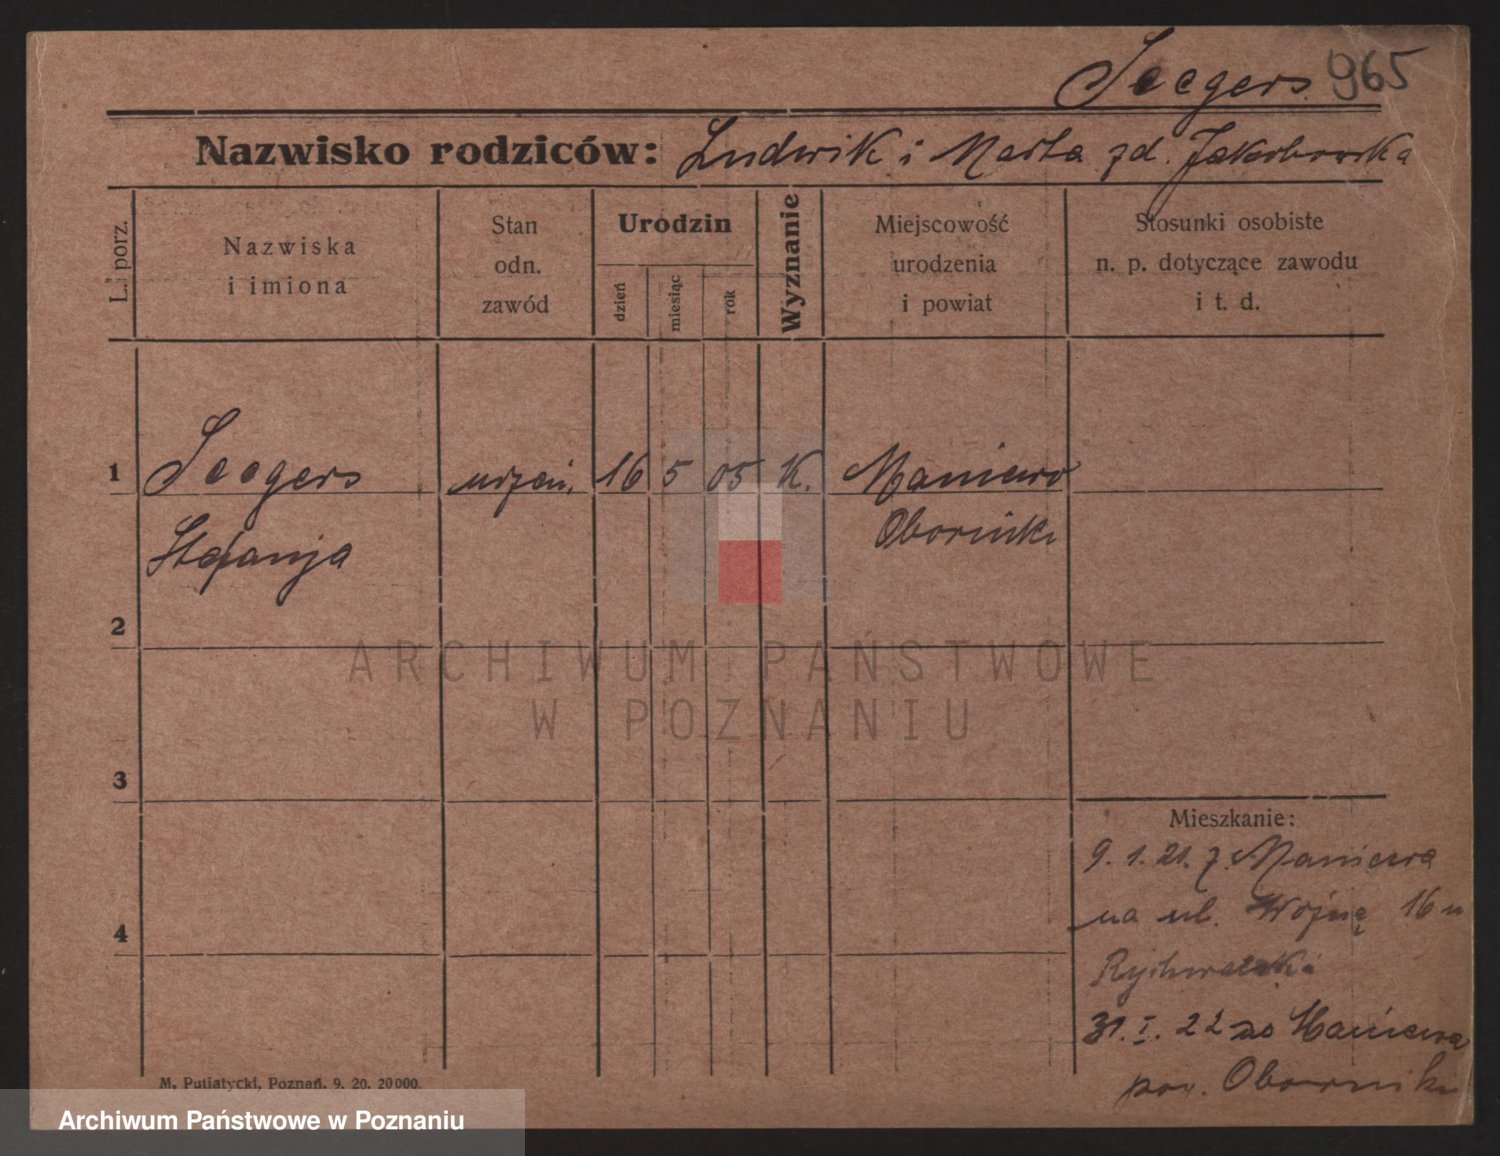 Seegers 965
Nazwisko rodziców: Ludwik i Marta zd. Jakubowska
L. porz.
Nazwiska
i imiona
Stan
odn.
zawód
Urodzin
dzień
miesiąc
rok
Wyznanie
Miejscowość
urodzenia
i powiat
Stosunki osobiste
n. p. dotyczące zawodu
i t. d.
1
Seegers 16 5 05 K. Maniewo
Stefanja Oborniki
2
ARCHIWUM PAŃSTWOWE
W POZNANIU
3
Mieszkanie:
9. 1. 21. z Maniewa
4
na ul. 16
31. I. 22 do Maniewa
pow. Oborniki
M. Putiatycki, Poznań. 9. 20. 20000.
Archiwum Państwowe w Poznaniu